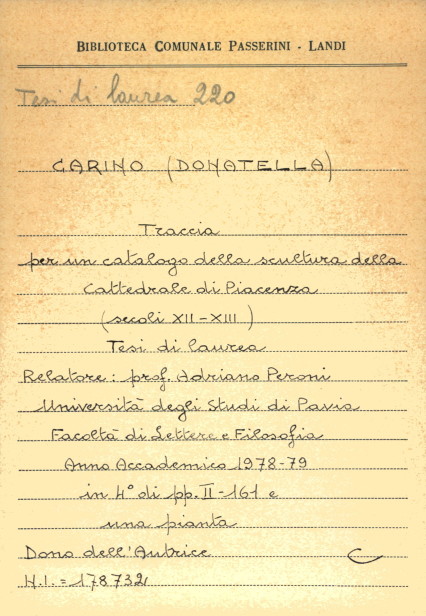 BIBLIOTECA COMUNALE PASSERINI - LANDI
Tesi di laurea 220
CARINO (DONATELLA)
Traccia
per un catalogo della scultura della
Cattedrale di Piacenza
(secoli XII-XIII)
Tesi di laurea
Relatore: prof. Adriano Peroni
Università degli Studi di Pavia
Facoltà di Lettere e Filosofia
Anno Accademico 1978-79
in 4° di pp. II-161 e
una pianta
Dono dell'Autrice
N.I. = 178732